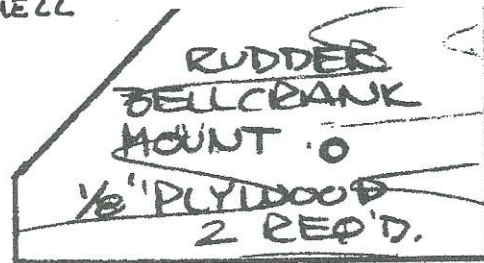 RUDDER
BELLCRANK
MOUNT
1/8" PLYWOOD
2 REQ'D.